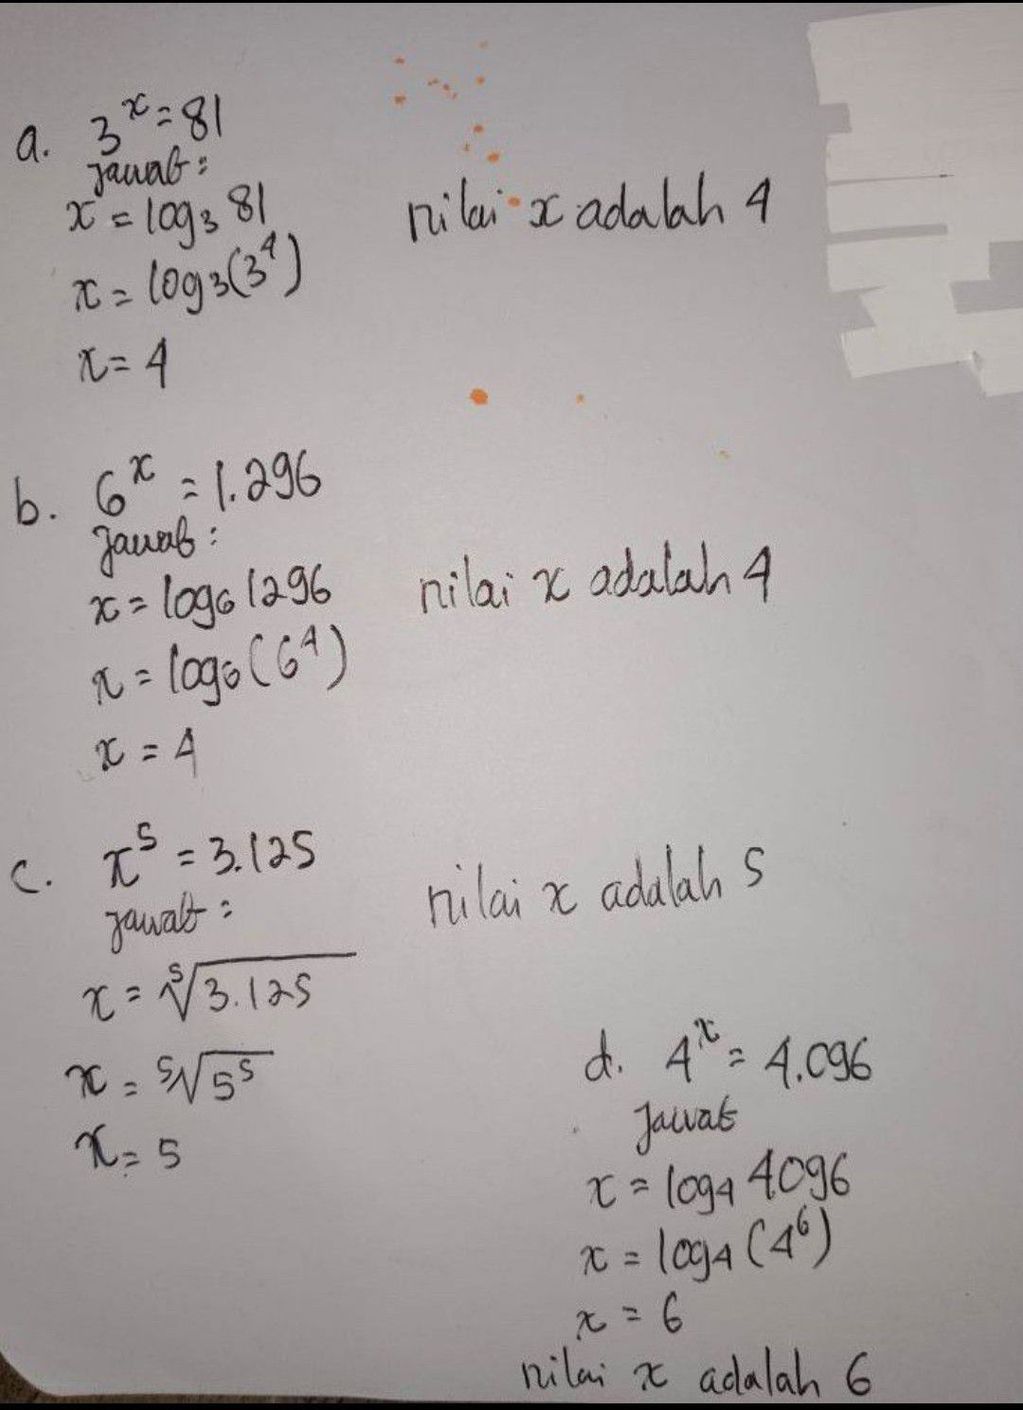 a. 3^x = 81
jawab :
x = log₃ 81
x = log₃(3⁴)
x = 4
nilai x adalah 4
b. 6^x = 1.296
jawab :
x = log₆ 1296
x = log₆(6⁴)
x = 4
nilai x adalah 4
c. x⁵ = 3.125
jawab :
x = ⁵√3.125
x = ⁵√5⁵
x = 5
nilai x adalah 5
d. 4^x = 4.096
Jawab
x = log₄ 4096
x = log₄(4⁶)
x = 6
nilai x adalah 6